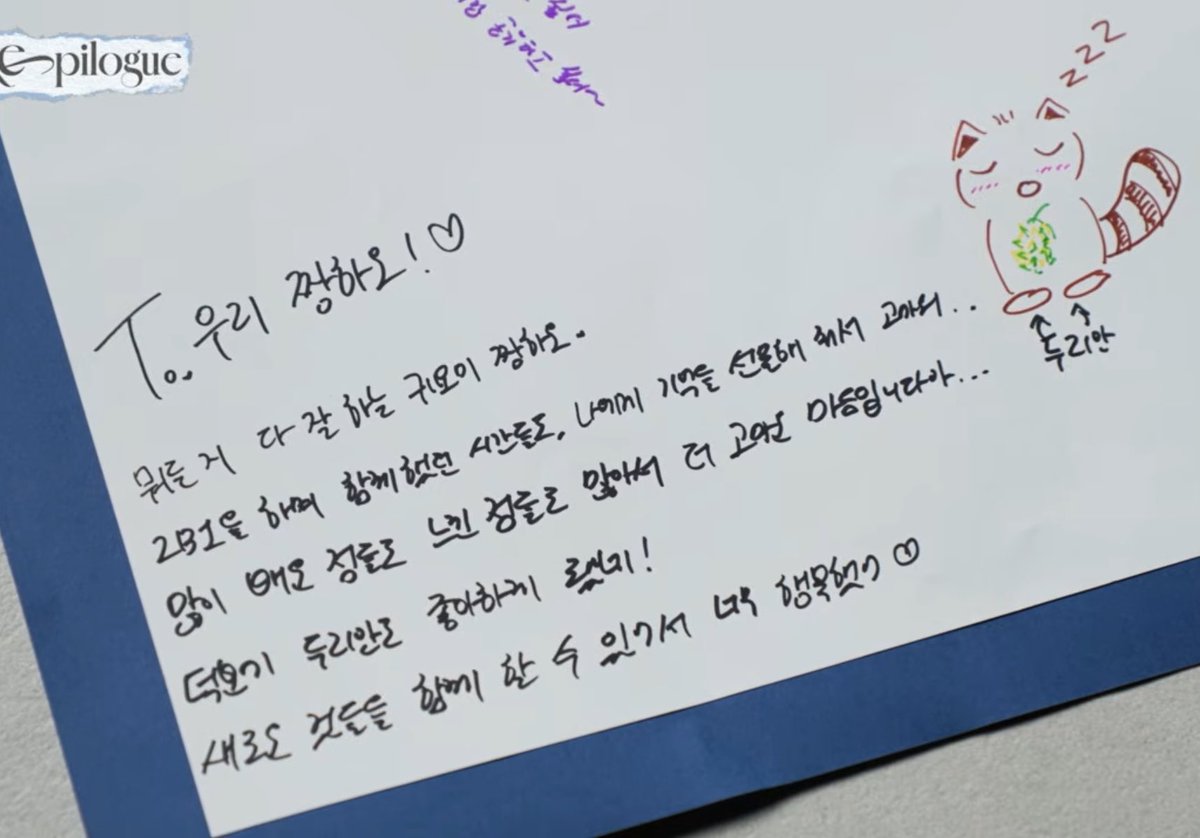 e-pilogue
zzz
To. 우리 짱하오!♡
두리안
뭐든지 다 잘 하는 귀요미 짱하오.
ZB1을 하며 함께했던 시간들도, 나에게 기억들 선물해 줘서 고마워..
많이 배운 점들도 느낀 점들도 많아서 더 고마운 마음입니다아...
덕분에 두리안도 좋아하게 됐지!
새로운 것들을 함께 할 수 있어서 너무 행복했어♡